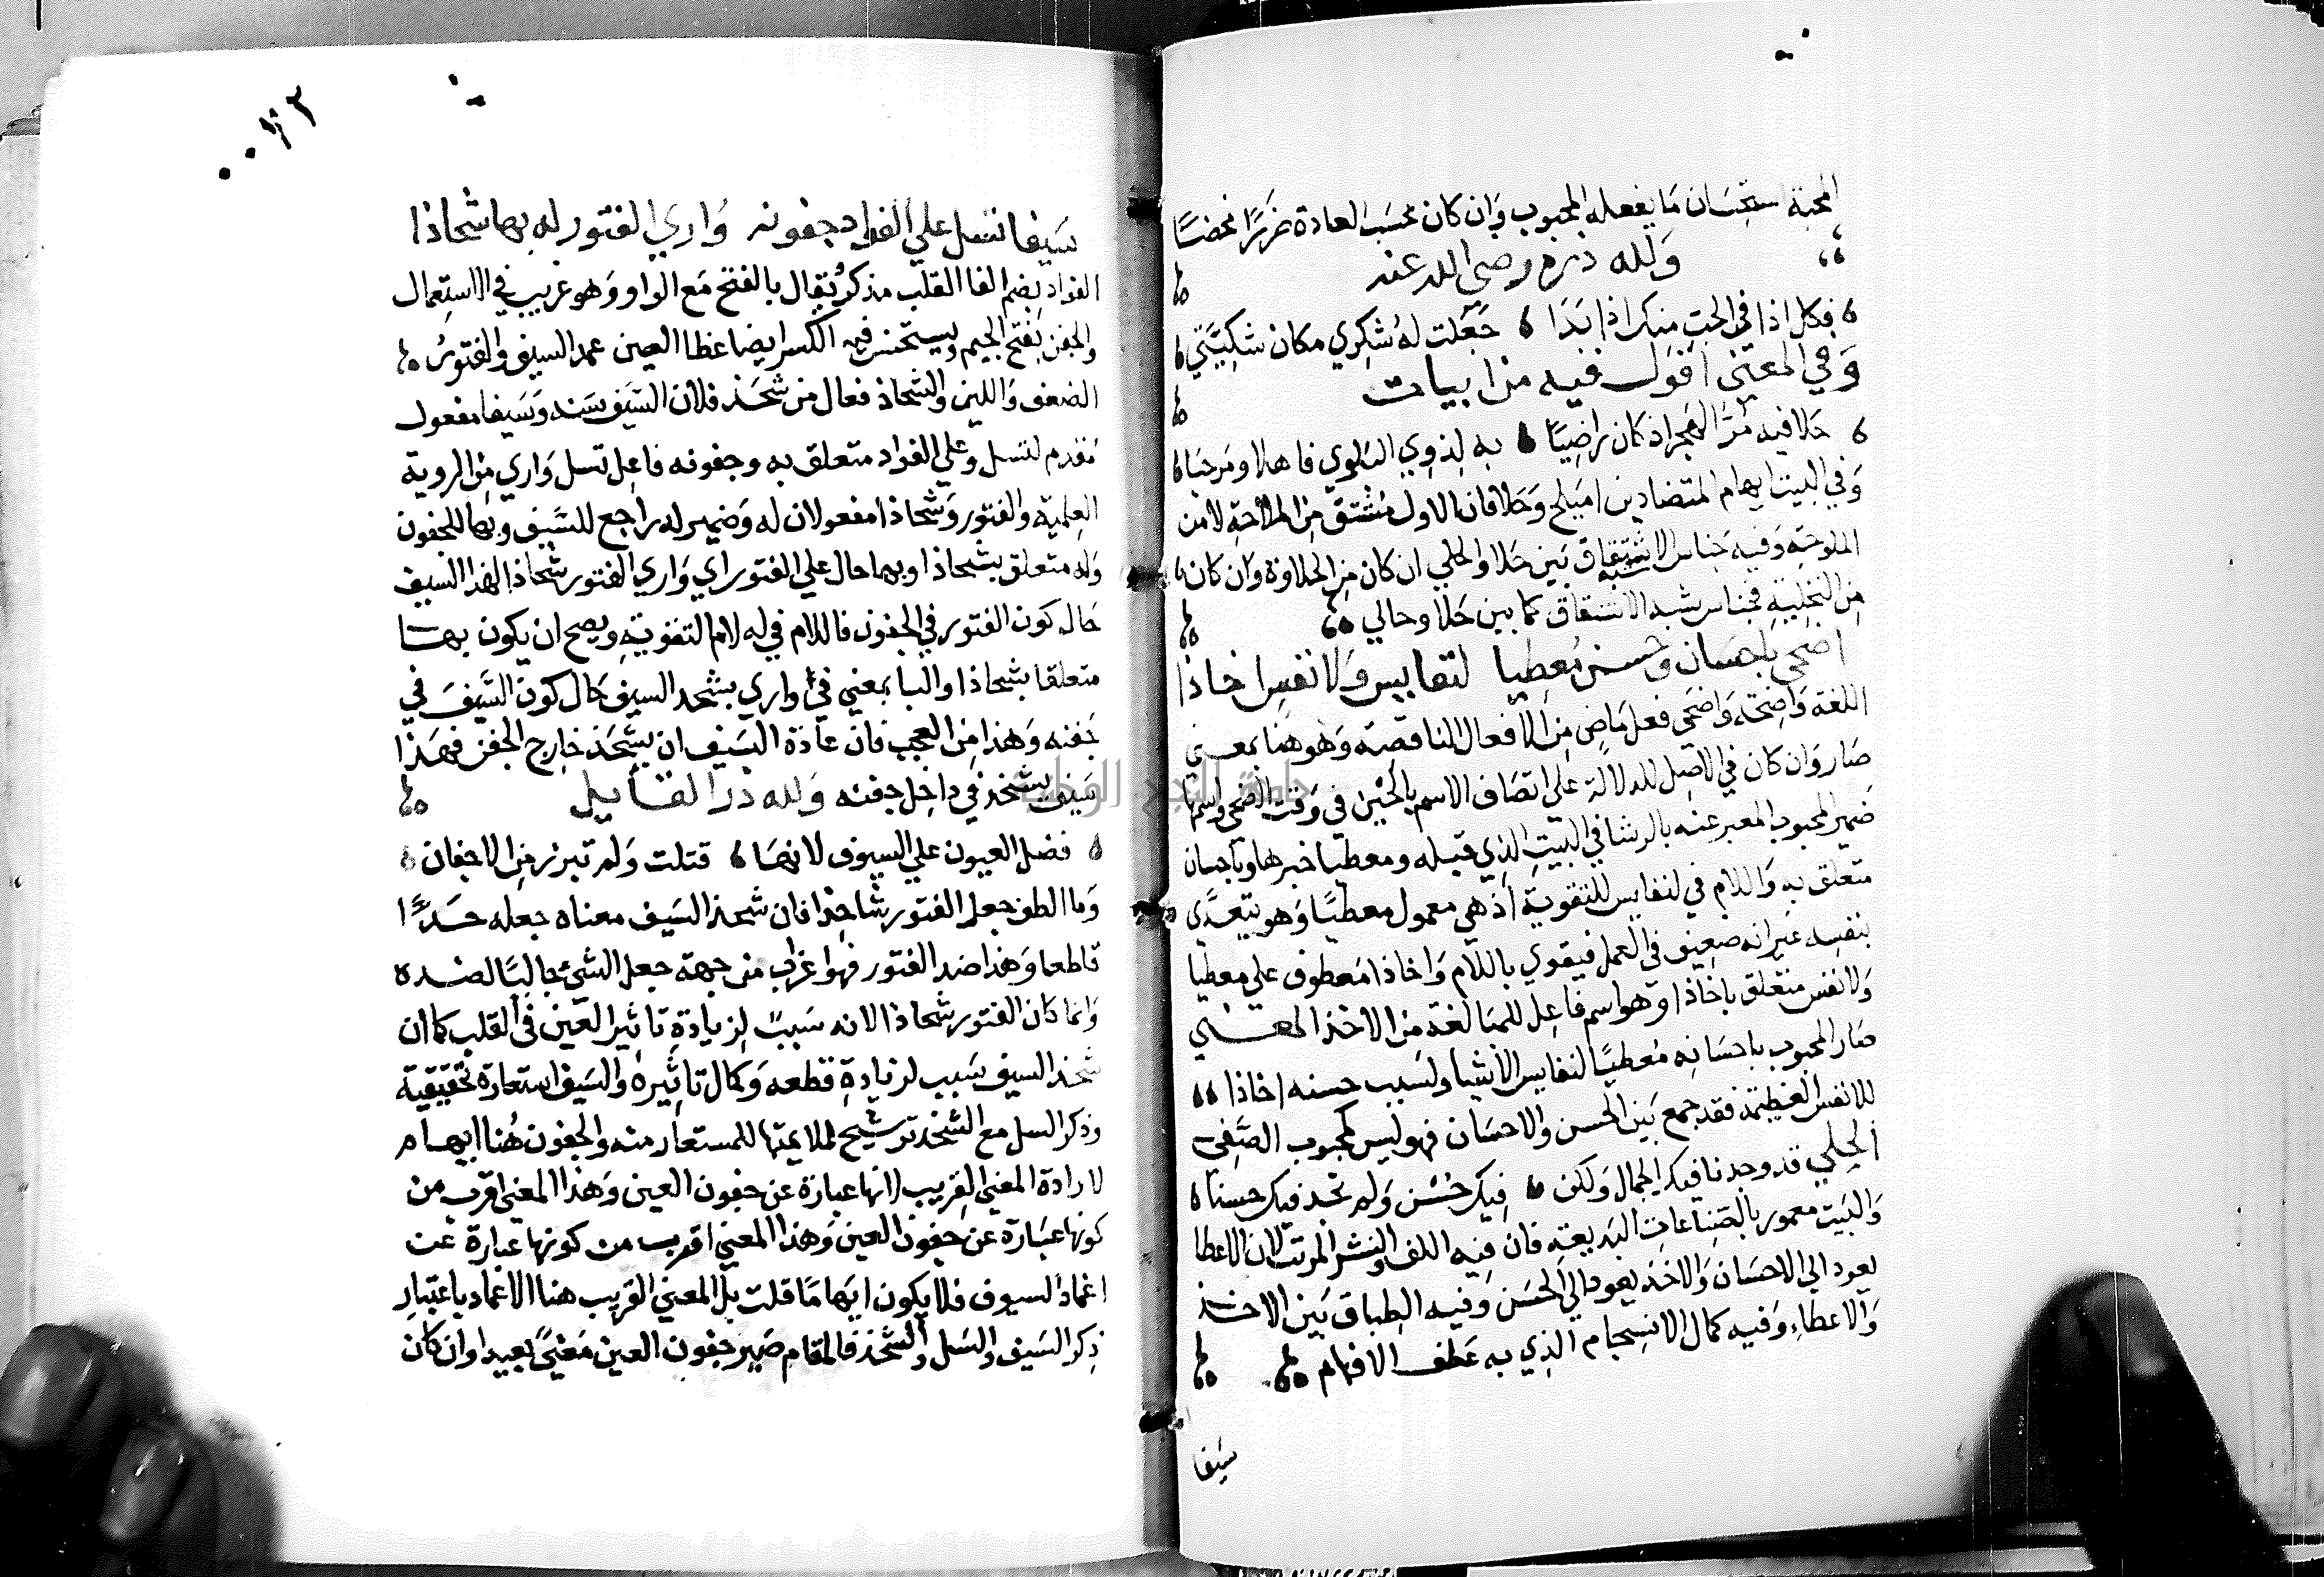 المحبة استحسان ما يفعله المحبوب وان كان بحسب العادة ضررا محضا
ولله دره رضي الله عنه
فكل اذا في الحب منك اذا بدا جعلت له شكري مكان شكيتي
وفي المعنى اقول فيه من ابيات
حلا فيه مر الهجر اذ كان راضيا به لذوي البلوي فاهلا ومرحبا
وفي البيت ايهام المتضادين اميلح وحلا فان الاول مشتق من الملاحة لا من
الملوحة وفيه جناس الاشتقاق بين حلا والحلي ان كان من الحلاوة وان كان
من التحلية فجناس شبه الاشتقاق كما بين حلا وحالي
اضحي باحسان وحسن معطيا لنفايس ولانفس اخاذا
اللغة واضحة واضحى فعل ماض من الافعال الناقصة وهو هنا بمعني
صار وان كان في الاصل للدلالة علي اتصاف الاسم بالخبر في وقت الضحى واسمها
ضمير المحبوب المعبر عنه بالرشا في البيت الذي قبله ومعطيا خبرها وباحسان
متعلق به واللام في لنفايس للتقوية اذ هي معمول معطيا وهو يتعدى
بنفسه غير انه ضعيف في العمل فيقوي باللام واخاذا معطوف علي معطيا
ولانفس متعلق باخاذا وهو اسم فاعل للمبالغة من الاخذ المعني
صار المحبوب باحسانه معطيا لنفايس الاشيا ولسبب حسنه اخاذا
للانفس العظيمة فقد جمع بين الحسن والاحسان فهو ليس كمحبوب الصفي
الحلي قد وجدنا فيك الجمال ولكن فيك حسن ولم نجد فيك حسنا
والبيت معمور بالصناعات البديعة فان فيه اللف والنشر المرتب لان الاعطا
يعود الي الاحسان والاخذ يعود الي الحسن وفيه الطباق بين الاخذ
والاعطاء وفيه كمال الانسجام الذي به عطف الافهام
سيفا
٠٠١٢
سيفا تسل علي الفواد جفونه واري الفتور له بها شحاذا
الفواد بضم الفا القلب مذكر يقال بالفتح مع الواو وهو غريب في الاستعمال
والجفن بفتح الجيم ويستحسن فيه الكسر ايضا غطا العين غمد السيف والفتور
الضعف واللين والشحاذ فعال من شحذ فلان السيف سنه وسيفا مفعول
مقدم لتسل وعلي الفواد متعلق به وجفونه فاعل تسل واري من الروية
العلمية والفتور وشحاذا مفعولان له وضمير له راجع للسيف وبها للجفون
وله متعلق بشحاذا وبها حال علي الفتور اي واري الفتور شحاذا لهذا السيف
حال كون الفتور في الجفون فاللام في له لام التقوية ويصح ان يكون بها
متعلقا بشحاذا والبا بمعني في اي واري يشحد السيف حال كون السيف في
جفنه وهذا من العجب فان عادة السيف ان يشحذ خارج الجفن فهذا
سيف يشحذ في داخل جفنه ولله در القايل
فضل العيون علي السيوف لانها قتلت ولم تبرز من الاجفان
وما الطف جعل الفتور شاحذا فان شحذ السيف معناه جعله حدا
قاطعا وهذا ضد الفتور فهو اغراب من جهة جعل الشئ جالبا لضده
وانما كان الفتور شحاذا لانه سبب لزيادة تاثير العين في القلب كما ان
شحذ السيف سبب لزيادة قطعه وكمال تاثيره والسيف استعارة تحقيقية
وذكر السل مع الشحذ ترشيح لملايمتها للمستعار منه والجفون هنا ايهام
لارادة المعني القريب لانها عبارة عن جفون العين وهذا المعني اقرب من
كونها عبارة عن جفون العين وهذا المعني اقرب من كونها عبارة عن
اغماد السيوف فلا يكون ايهاما قلت بل المعني القريب هنا الاغماد باعتبار
ذكر السيف والسل والشحذ فالمقام صير جفون العين معنى بعيدا وان كان